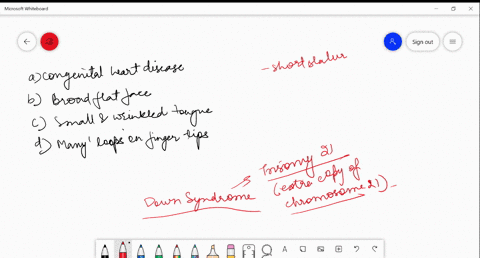 Microsoft Whiteboard
Sign out
a) Congenital heart disease
- short statur
b) Broad flat face
c) Small & wrinkled tongue
d) Many 'loops' on finger tips
Trisomy 21
(extre copy of
chromosome 21) -
Down Syndrome